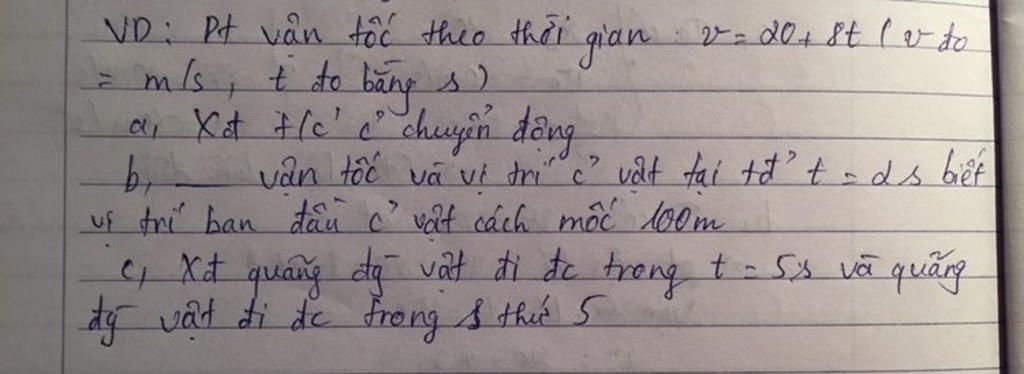 VD: Pt vận tốc theo thời gian v = 20 + 8t ( v đo
= m/s, t đo bằng s)
a, Xđ t/c' c' chuyển động
b, __ vận tốc và vị trí c' vật tại tđ' t = 2s biết
vị trí ban đầu c' vật cách mốc 100m
c, Xđ quãng đg vật đi đc trong t = 5s và quãng
đg vật đi đc trong s thứ 5